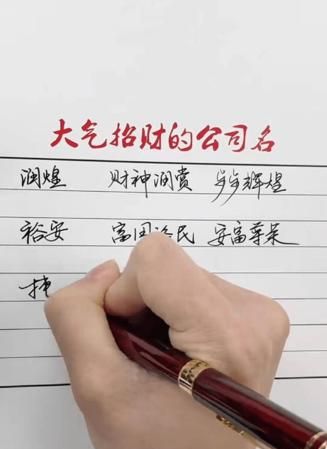 大气招财的公司名
润煌 财神润赏 岁岁辉煌
裕安 富国裕民 安富尊荣